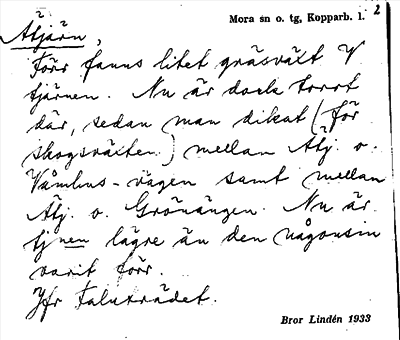 Mora sn o. tg, Kopparb. l. 2
Åtjärn,
Förr fanns litet gräsvält V
tjärnen. Nu är dock torrt
där, sedan man dikat (för
skogsväxten) mellan Åtj. o.
Våmhus-vägen samt mellan
Åtj. o. Grönängen. Nu är
tjnen lägre än den någonsin
varit förr.
Jfr Faluträdet.
Bror Lindén 1933